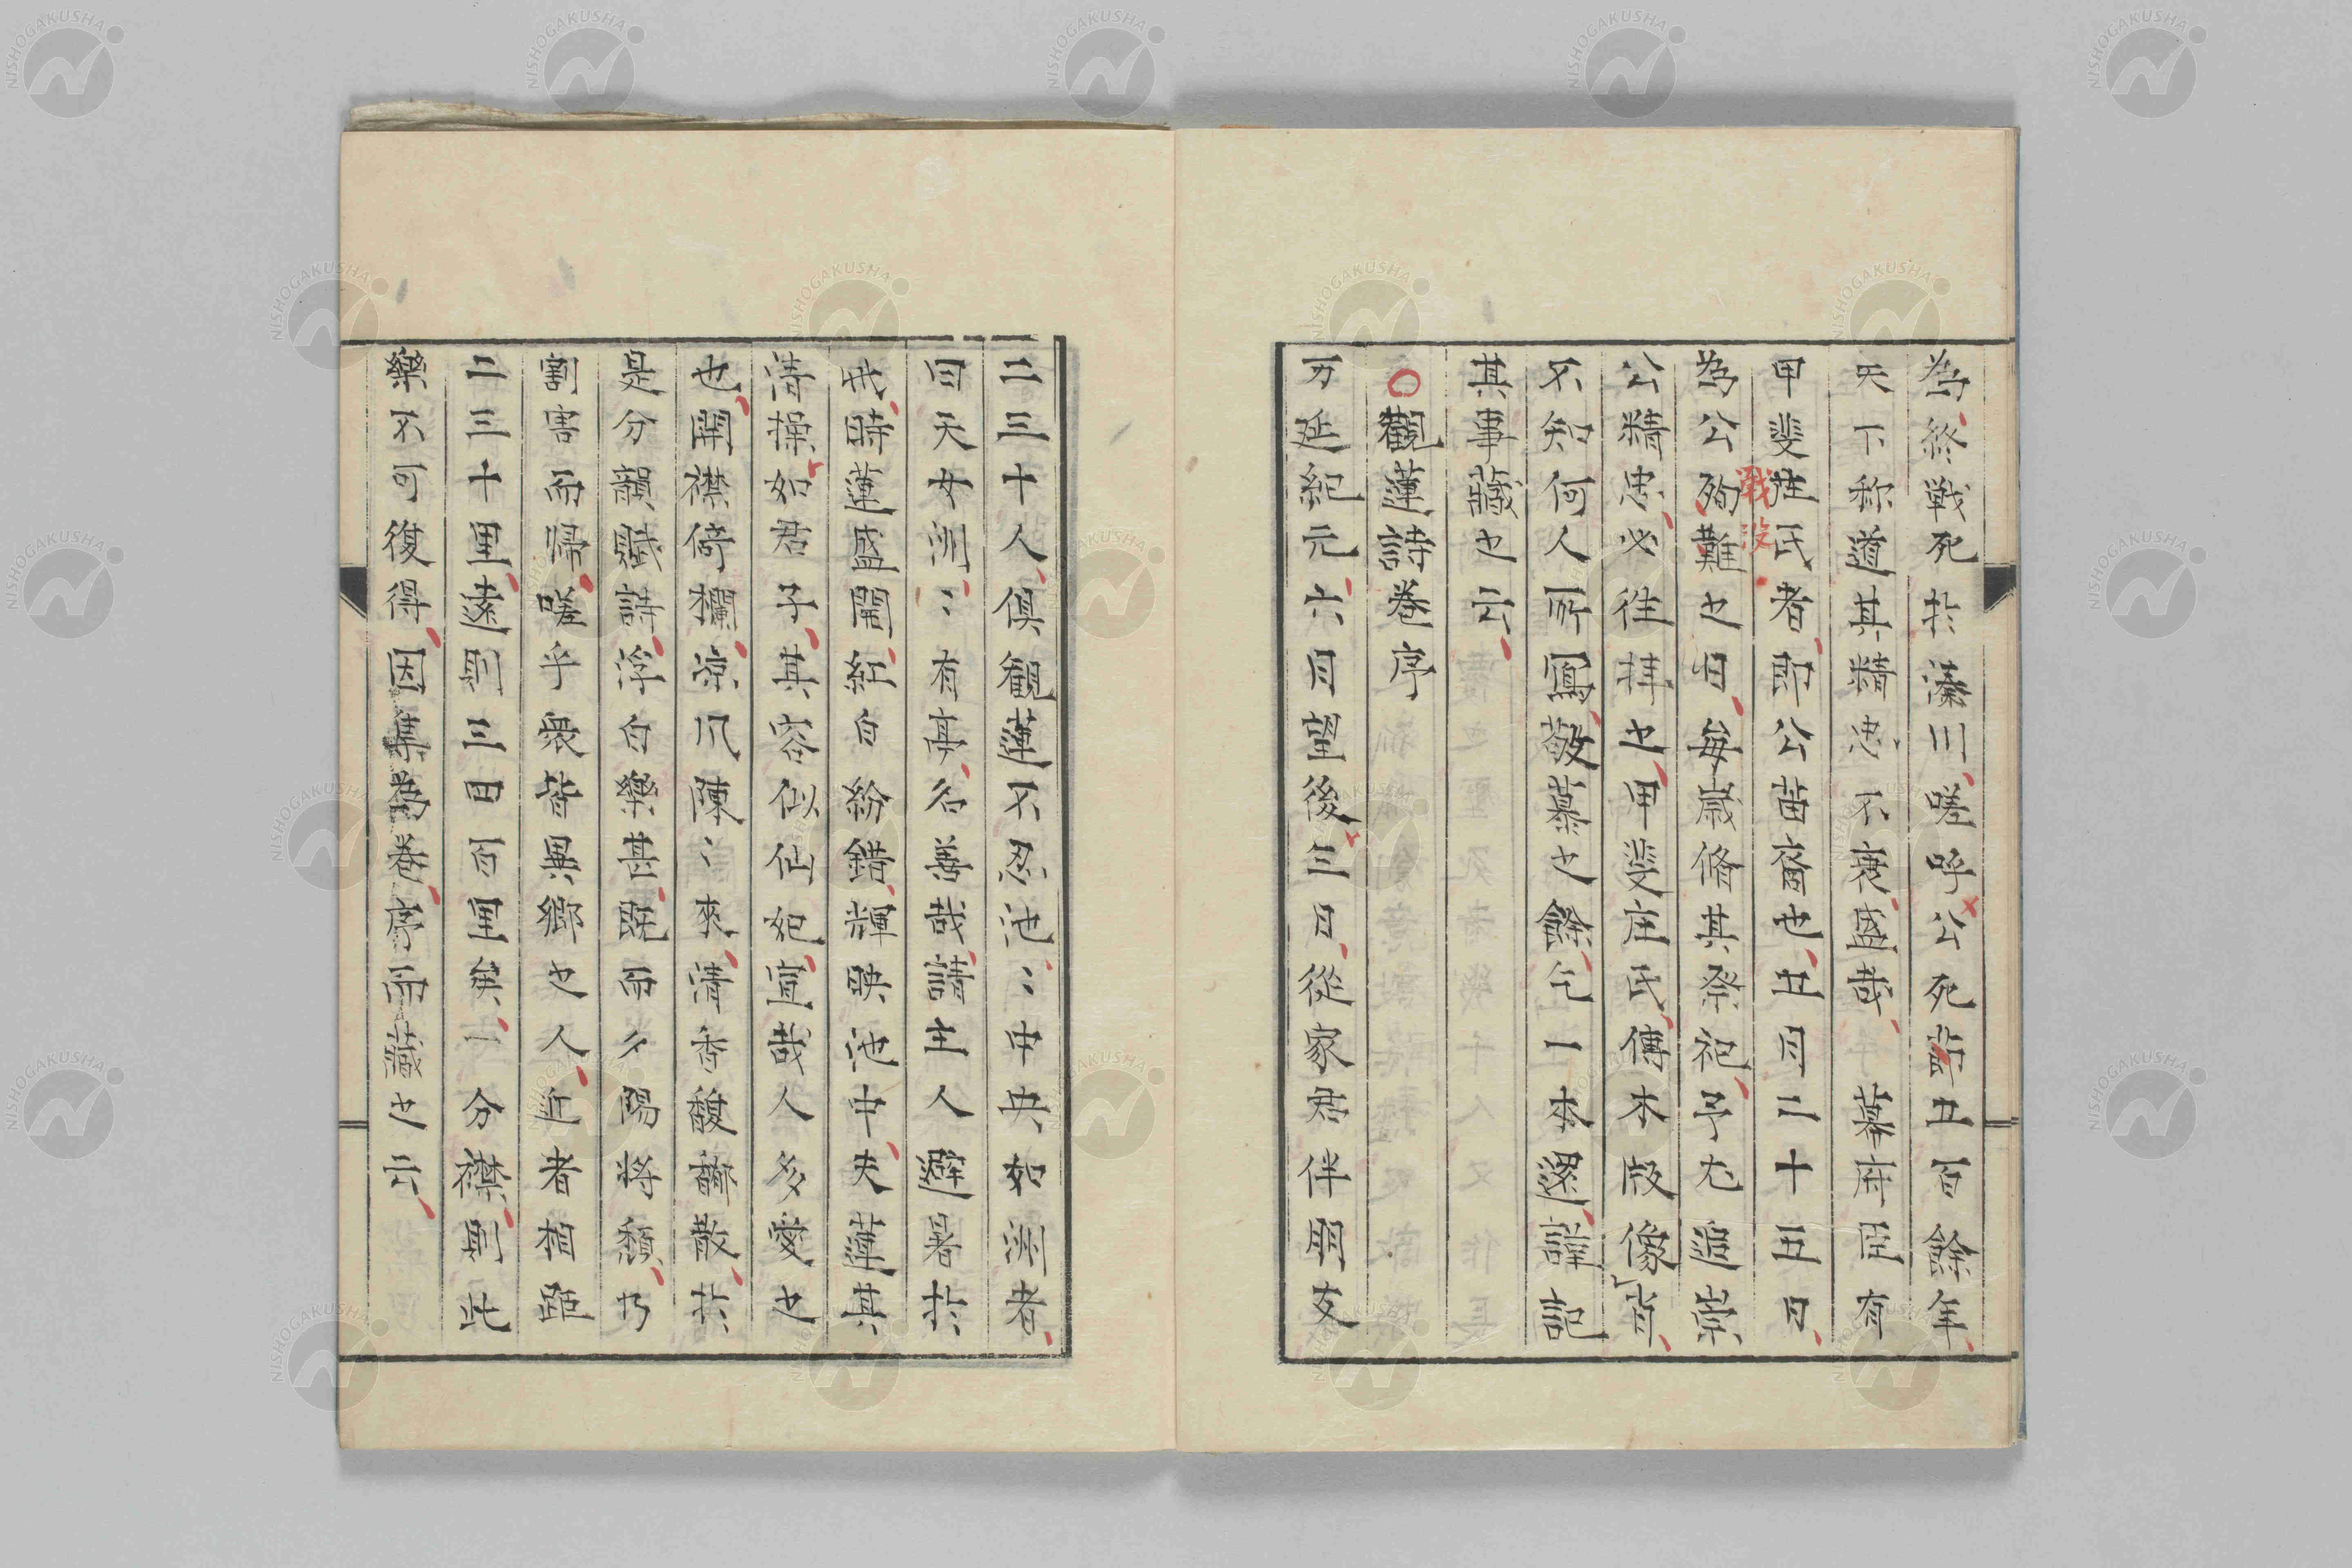 為終戰死於湊川嗟呼公死歿五百餘年
天下称道其精忠不衰盛哉 幕府臣有
甲斐庄氏者即公苗裔也五月二十五日
戦没
為公殉難之日毎歳脩其祭祀予尤追崇
公精忠必往拝之甲斐庄氏傳本殿像肖
不知何人所寫敬慕之餘乞一本遂謹記
其事藏之云
○觀蓮詩巻序
万延紀元六月望後三日從家君伴朋友
二三十人倶観蓮不忍池〻中央如洲者
曰天女洲〻有亭名善哉請主人避暑於
此時蓮盛開紅白紛錯輝映池中夫蓮其
清操如君子其容似仙妃宜哉人多愛之
也開襟倚欄涼風陳〻來清香馥郁散於
是分韻賦詩浮白樂甚既而夕陽将頽乃
割害而帰嗟乎衆皆異郷之人近者相距
二三十里遠則三四百里矣一分襟則此
樂不可復得因集為巻序而藏之云
NISHOGAKUSHA